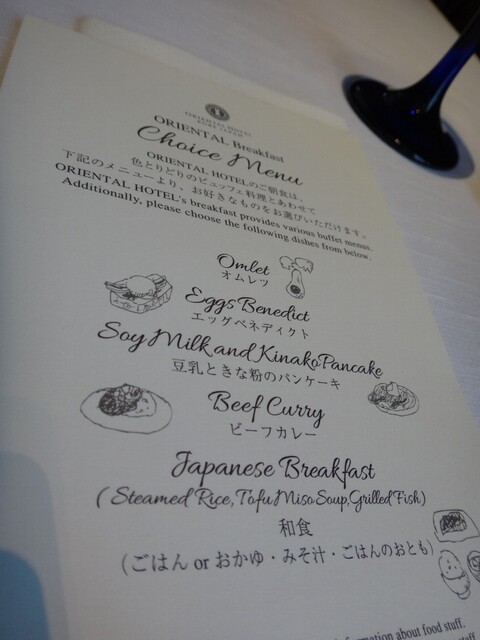 ORIENTAL HOTEL
ORIENTAL Breakfast
Choice Menu
ORIENTAL HOTELのご朝食は、
色とりどりのビュッフェ料理とあわせて
下記のメニューより、お好きなものをお選びいただけます。
ORIENTAL HOTEL's breakfast provides various buffet menus.
Additionally, please choose the following dishes from below.
Omlet
オムレツ
Eggs Benedict
エッグベネディクト
Soy Milk and Kinako Pancake
豆乳ときな粉のパンケーキ
Beef Curry
ビーフカレー
Japanese Breakfast
( Steamed Rice, Tofu Miso Soup, Grilled Fish)
和食
(ごはん or おかゆ・みそ汁・ごはんのおとも)
information about food stuff.